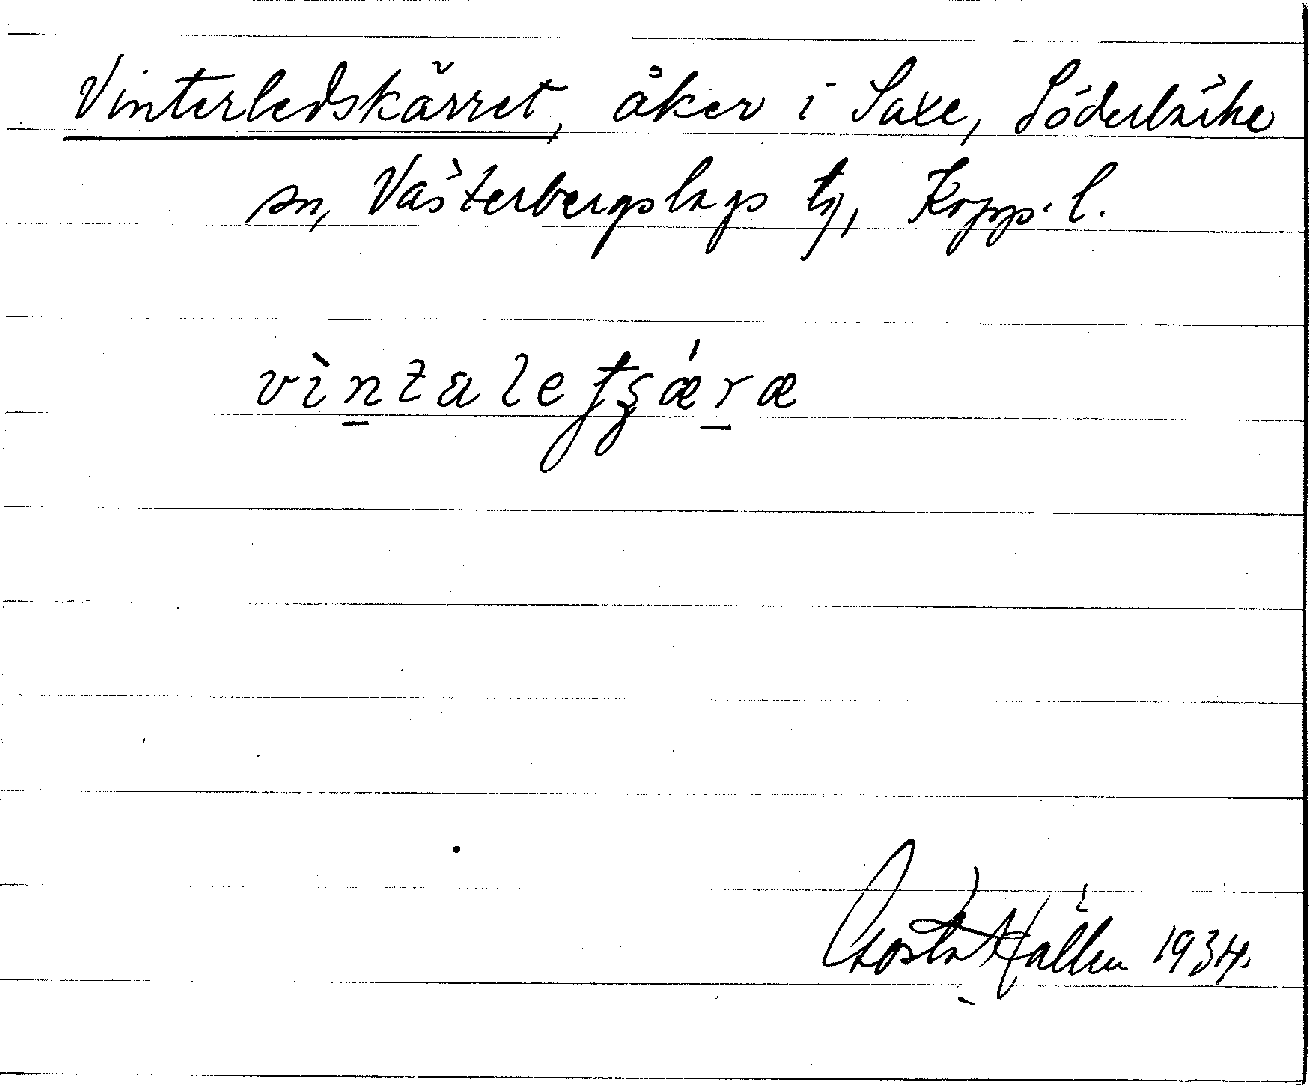 Vinterledskärret, åker i Saxe, Söderbärke
sn, Västerbergslags tg, Kopp. l.
vìntaleʃʂǽræ
Gösta Hällen 1934.